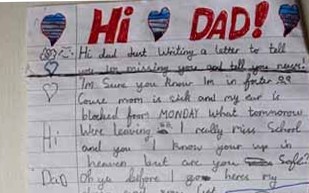 Hi DAD!
Hi dad Just Writing a letter to tell
you Im missing you and tell you news!
I'm Sure you know Im in foster as
Couse mom is sick and my ear is
blocked from MONDAY What tommorow
Hi Were leaving I really miss School
and you I know your up in
heaven but are you Safe?
Dad Oh ye before I go heres my